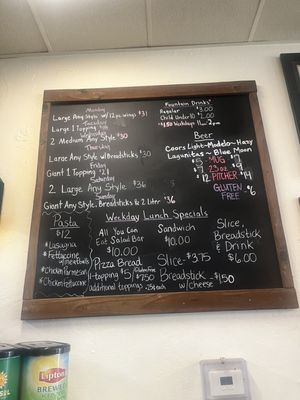 Monday
Large Any Style w/ 12 pc. wings $31
Tuesday
Large 1 Topping
Wednesday
2 Medium Any Style $30
Thursday
Large Any Style w/ Breadsticks $30
Friday
Giant 1 Topping
Saturday
2 Large Any Style $36
Sunday
Giant Any Style, Breadsticks & 2 Liter $36
Fountain Drinks
Regular $3.00
Child Under 10
Weekdays 11-2pm
Beer
Coors Light-Modelo-Hazy
Lagunitas~Blue Moon
$5 MUG $7
$7 23oz $9
$12 PITCHER $14
GLUTEN FREE $6
Pasta
$12
Lasagna
Fettuccine
w/meatballs
Chicken Parmesan
Chicken Fettuccine
Weekday Lunch Specials
All You
Can Eat
Salad Bar
$10.00
Sandwich
$10.00
Slice,
Breadstick
& Drink
$6.00
Pizza Bread
1-topping $5/Gluten Free $7.50
additional toppings .25¢ each
Slice - $3.75
Breadstick - $1.50
w/ Cheese
Lipton
BREWED